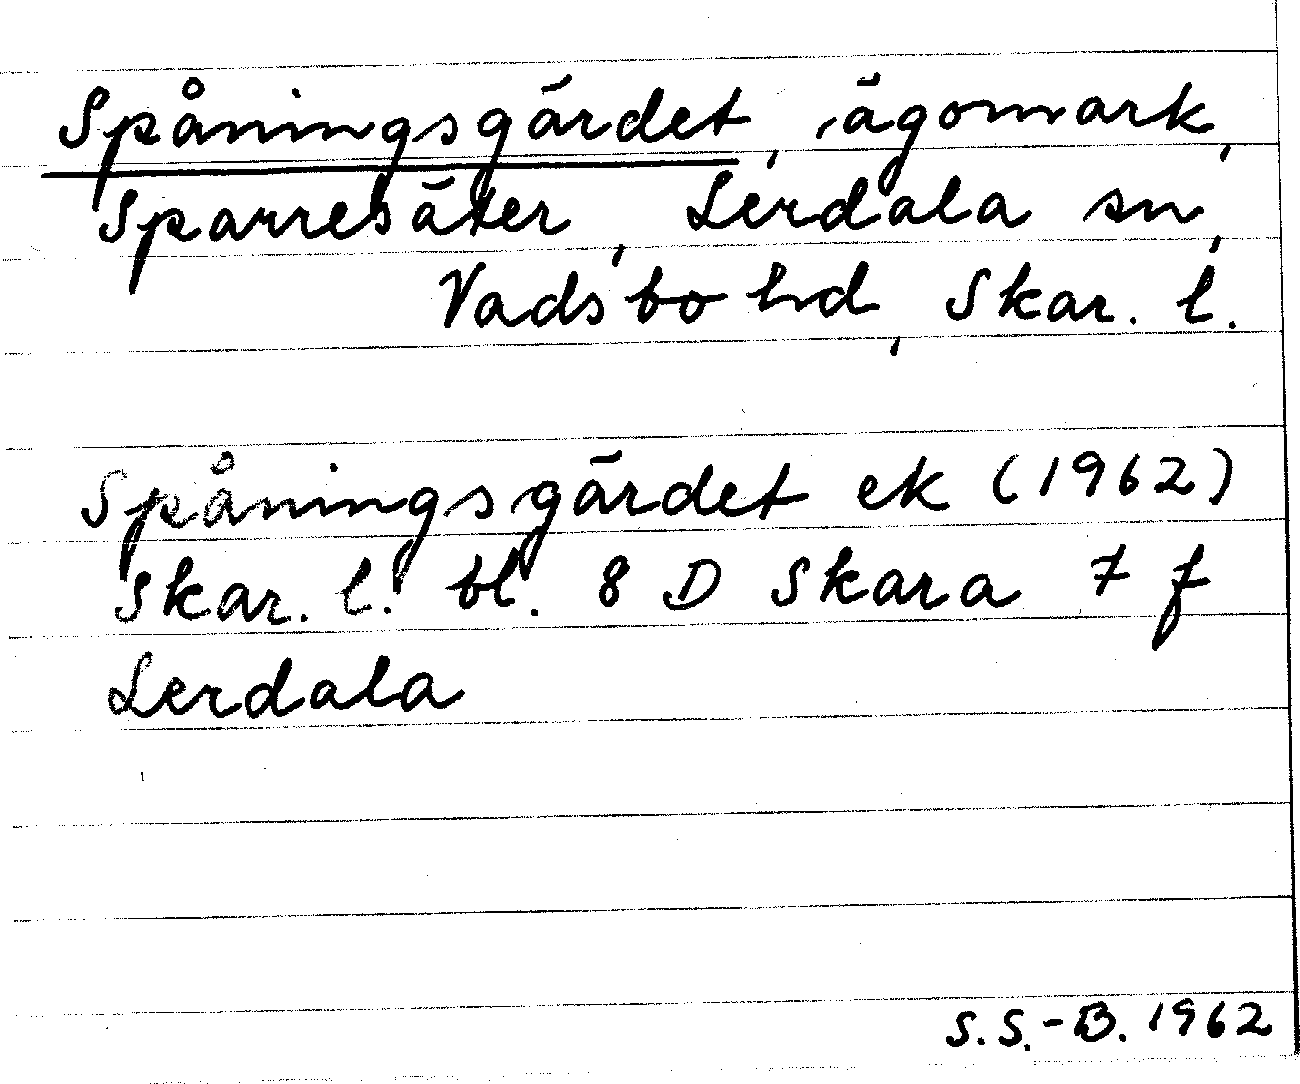 Spåningsgärdet, ägomark,
Sparresäter, Lerdala sn,
Vadsbo hd, Skar. l.
Spåningsgärdet ek (1962)
Skar. l. bl. 8 D Skara 7 f
Lerdala
S.S.-B. 1962